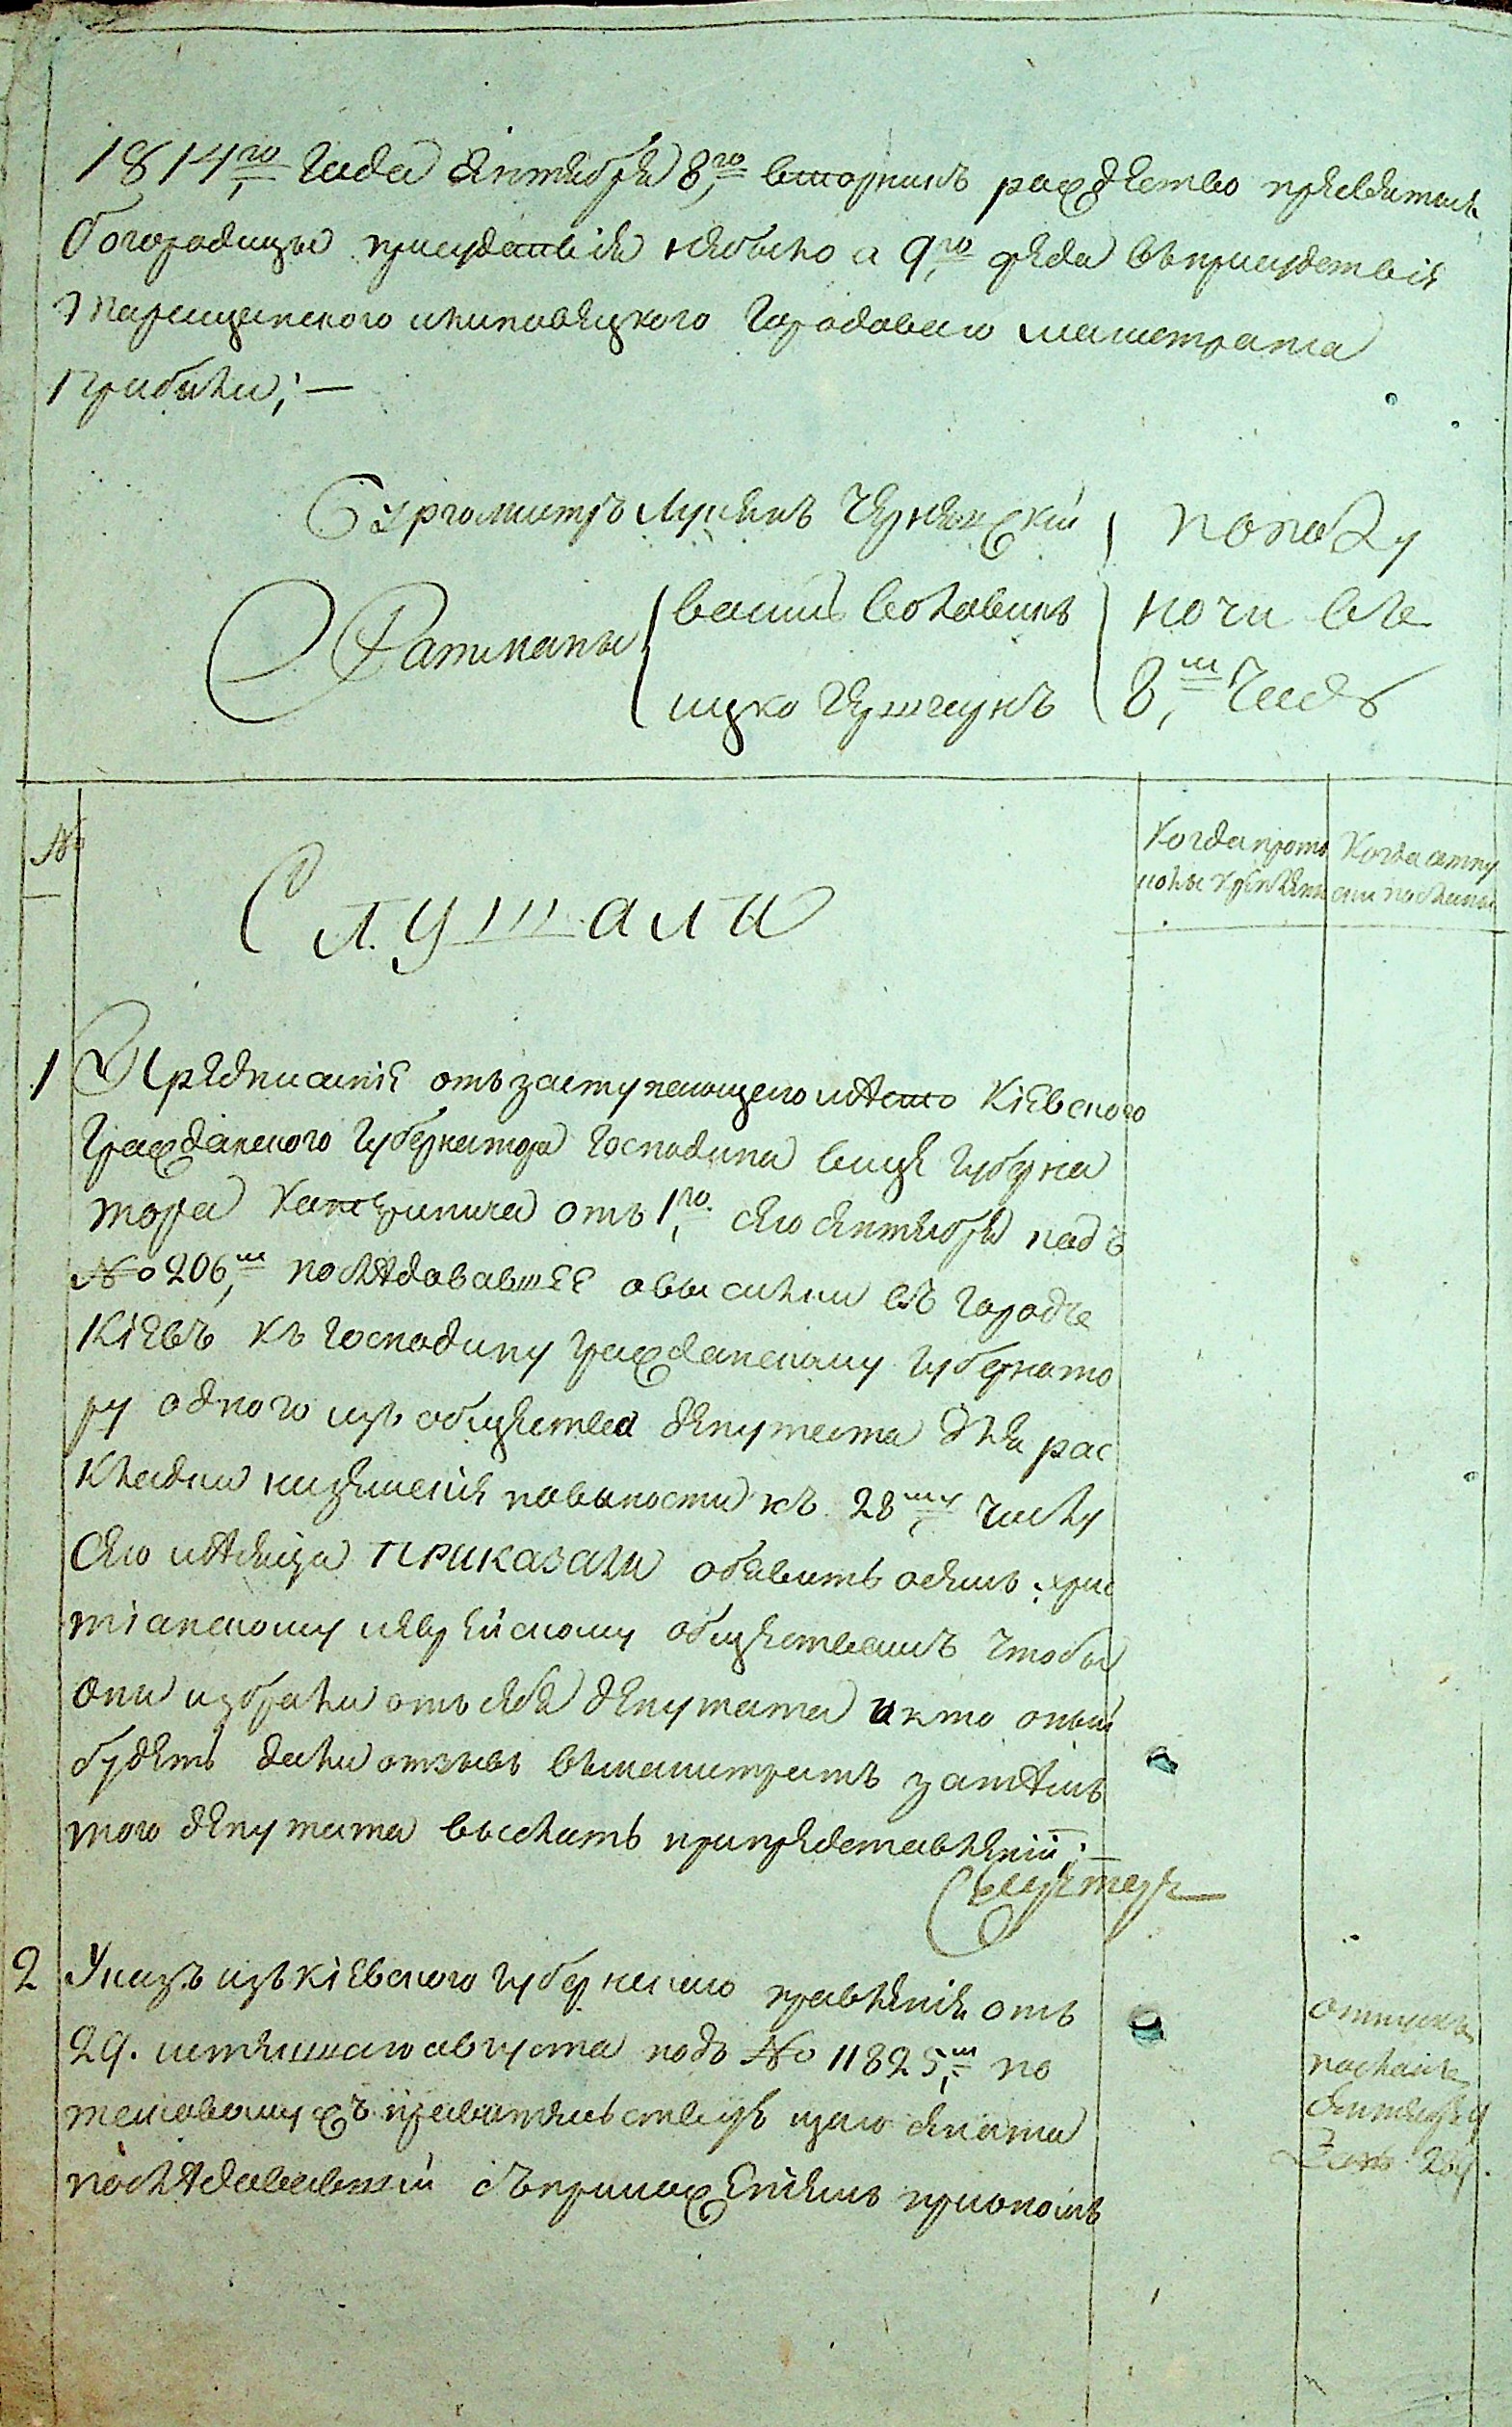 1814,го года сентября 8,го вторникъ рождество пресвятыя
богородицы присудствія небыло а 9,го среда въприсудствія
Таращанского илиповецкого городоваго магистрата
прибыли; —
Бургомистръ Чернявскій } пополу
Ратманы { васил } ночи въ
ицко } 8,м часа
№
Слушали
Когда прото
колы
Когда
посланы
1 Предписаніе отъзаступающего мѣсто Кіевского
гражданского губернатора господина вице губерна
тора отъ 1,го сего сентября подъ
№ 206,м послѣдовавшее овысилки въ городъ
Кіевъ къ господину гражданскому губернато
ру одного изъ общества депутата для рас
кладки наземскія повыности къ 28,му числу
сего мѣсяца приказали обявить осемъ хрис
тіанскому иеврейскому обществамъ чтобы
они избрали отъ себя депутата икто оный
будетъ дали отзывъ вмагистратъ затѣмъ
того депутата выслать припредставленіи; —
2 Указъ изъ кіевского губернского правленія отъ
29. истекшаго августа подъ № 11825,м по
таковому жъ правительствующаго сената
послѣдовавшій съприложеніемъ приономъ
отпускъ
посланъ
Сентября 9